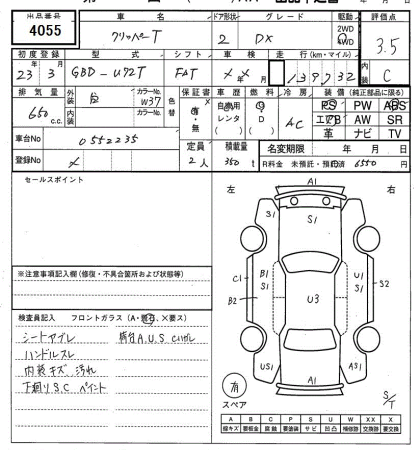 出品番号 車名 ドア形状 グレード 駆動 評価点
4055 クリッパーT 2 DX 2WD 4WD 3.5
初度登録 型式 シフト 車検 走行(km・マイル) 内装
23年3月 GBD-U72T FAT ××月 139732 C
排気量 外装 カラーNo. 色替 保証書 車歴 燃料 冷房 装備(純正部品に限る)
650 c.c. 白 W37 有・無 自家用 レンタ G D AC PS PW ABS
内装 カラーNo. エアB AW SR
革 ナビ TV
車台No 0552235 定員 積載量 名変期限 年 月 日
登録No × 2人 350 t R料金 未預託・預託済 6550円
セールスポイント
左 A1 右
S1 S1
C1 B1 S1 U1 S1 S2
B2 U3
※注意事項記入欄(修復・不具合箇所および状態等)
検査員記入 フロントガラス(A・飛石、×要ス)
シートヤブレ
ハンドルスレ
内装キズ 汚れ
下廻りS.C ペイント
US1 A1 AS1
有
スペア S/T
A B C P S U W X XX
線キズ 要板金 腐蝕 要塗装 サビ 凹凸 補修跡 要交換 交換済